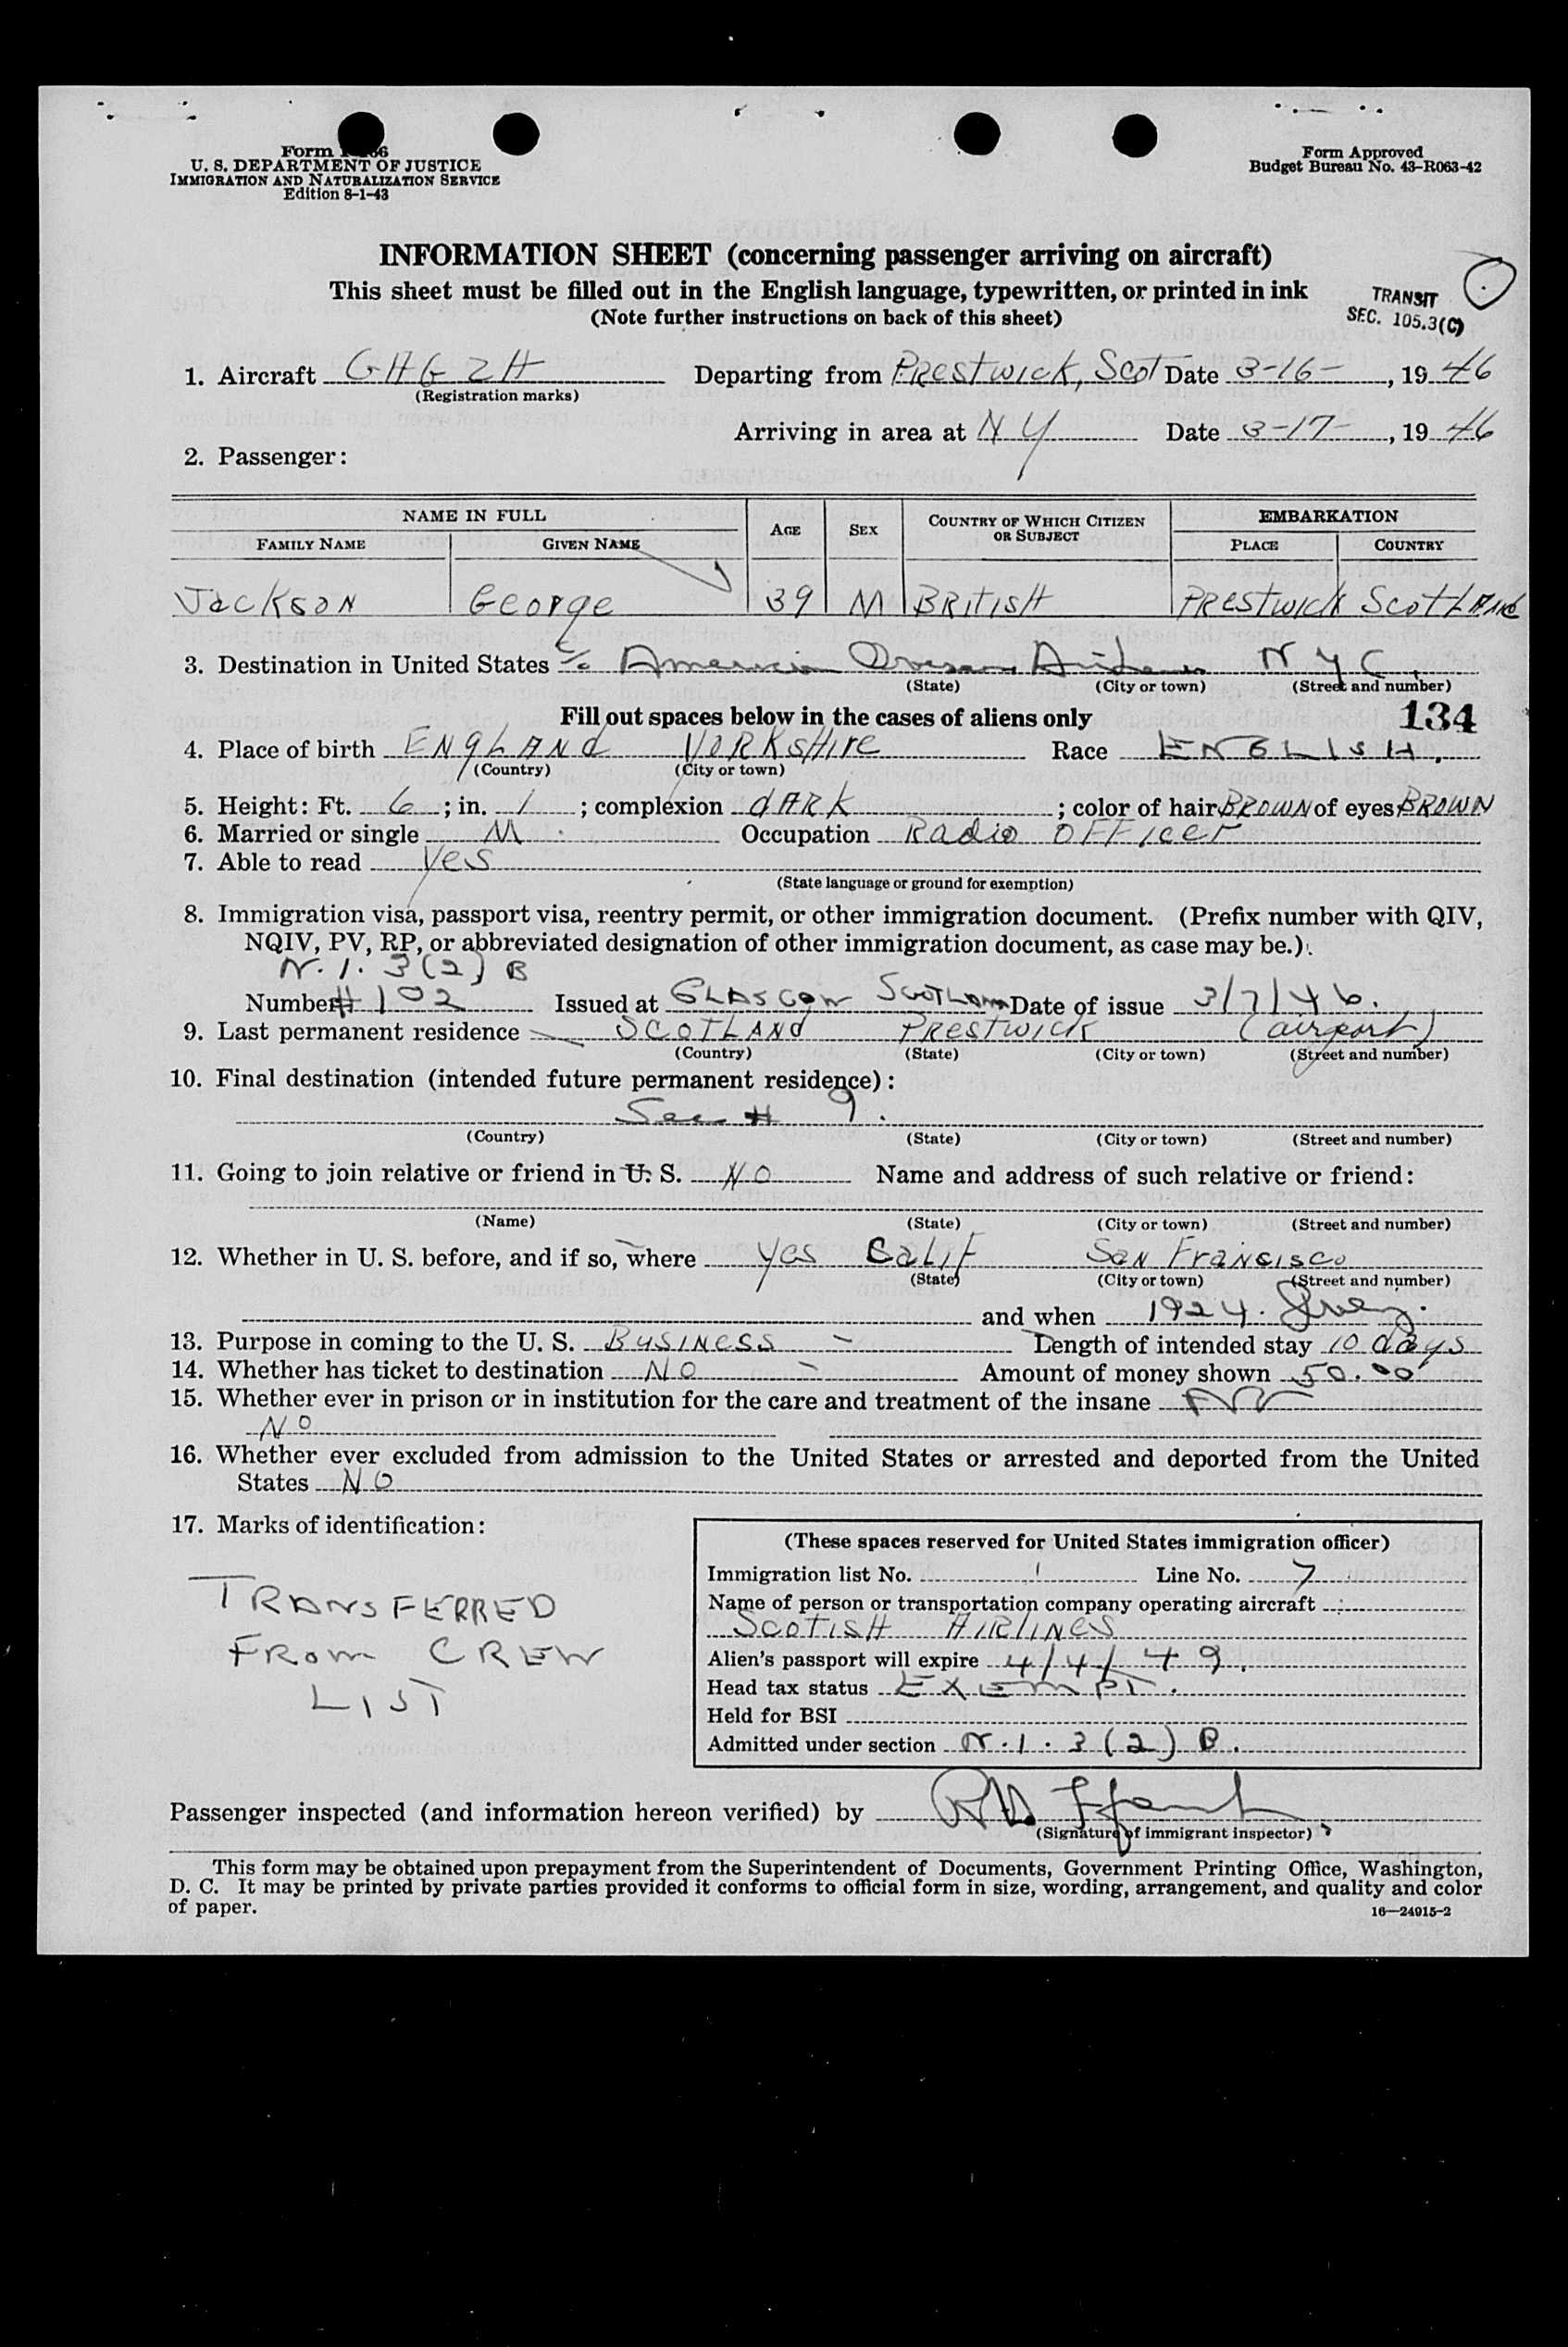 Form
U. S. DEPARTMENT OF JUSTICE
IMMIGRATION AND NATURALIZATION SERVICE
Edition 8-1-43
Form Approved
Budget Bureau No. 43-R063-42
INFORMATION SHEET (concerning passenger arriving on aircraft)
This sheet must be filled out in the English language, typewritten, or printed in ink
(Note further instructions on back of this sheet)
TRANSIT
SEC. 105.3(C)
1. Aircraft GAGZH Departing from Prestwick, Scot Date 3-16-, 1946
(Registration marks)
Arriving in area at NY Date 3-17-, 1946
2. Passenger:
NAME IN FULL AGE SEX COUNTRY OF WHICH CITIZEN OR SUBJECT EMBARKATION
FAMILY NAME GIVEN NAME PLACE COUNTRY
Jackson George 39 M BRITISH PRESTWICK SCOTLAND
3. Destination in United States c/o American Overseas Airlines NYC
(State) (City or town) (Street and number)
Fill out spaces below in the cases of aliens only 134
4. Place of birth ENGLAND YORKSHIRE Race ENGLISH.
(Country) (City or town)
5. Height: Ft. 6; in. 1; complexion dARK; color of hair BROWN of eyes BROWN
6. Married or single M Occupation Radio OFFicer
7. Able to read Yes
(State language or ground for exemption)
8. Immigration visa, passport visa, reentry permit, or other immigration document. (Prefix number with QIV,
NQIV, PV, RP, or abbreviated designation of other immigration document, as case may be.)
N.I. 3(2) B
Number #102 Issued at GLASCOW SCOTLAND Date of issue 3/7/46.
9. Last permanent residence SCOTLAND PRESTWICK (airport)
(Country) (State) (City or town) (Street and number)
10. Final destination (intended future permanent residence):
See # 9.
(Country) (State) (City or town) (Street and number)
11. Going to join relative or friend in U. S. NO Name and address of such relative or friend:
(Name) (State) (City or town) (Street and number)
12. Whether in U. S. before, and if so, where yes Calif San Francisco
(State) (City or town) (Street and number)
and when 1924.
13. Purpose in coming to the U. S. BUSINESS - Length of intended stay 10 days
14. Whether has ticket to destination NO - Amount of money shown 50.00
15. Whether ever in prison or in institution for the care and treatment of the insane
NO
16. Whether ever excluded from admission to the United States or arrested and deported from the United
States NO
17. Marks of identification:
TRANSFERRED
FROM CREW
LIST
(These spaces reserved for United States immigration officer)
Immigration list No. 1 Line No. 7
Name of person or transportation company operating aircraft
SCOTISH AIRLINES
Alien's passport will expire 4/4/49.
Head tax status EXEMPT.
Held for BSI
Admitted under section N.I. 3(2) B.
Passenger inspected (and information hereon verified) by
(Signature of immigrant inspector)
This form may be obtained upon prepayment from the Superintendent of Documents, Government Printing Office, Washington,
D. C. It may be printed by private parties provided it conforms to official form in size, wording, arrangement, and quality and color
of paper.
16—24915-2